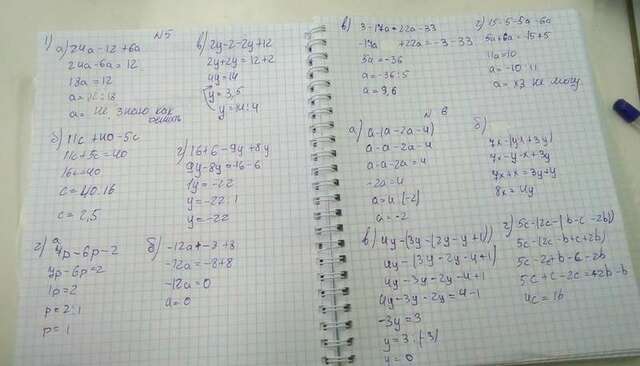 N5
1) а) 24а-12+6а
24а-6а=12
18а=12
а=12:18
а= не знаю как решать
в) 2y-2-2y+12
2y+2y=12+2
4y=14
y=3,5
y=14:4
б) 11c+40-5c
11c+5c=40
16c=40
c=40:16
c=2,5
г) 16+6-9y+8y
9y-8y=-16-6
1y=-22
y=-22:1
y=-22
а) 4p-6p-2
4p-6p=2
1p=2
p=2:1
p=1
б) -12a+-3+8
-12a=-8+8
-12a=0
a=0
в) 3-17а+22а-33
-17а +22а=-3-33
5а=-36
а=-36:5
а=9,6
г) 15-5-5а-6а
5а+6а=-15+5
11а=10
а=-10:11
а= хз не могу
N 6
а) а-(а-2а-4)
а-а-2а-4
а-а-2а=4
-2а=4
а=4:(-2)
а=-2
б)
7x-(yx+3y)
7x-y-x+3y
7x+x=3y+y
8x=4y
в) 4y-(3y-(2y-y+1))
4y-(3y-2y-4+1)
4y-3y-2y-4+1
4y-3y-2y=4-1
-3y=3
y=3:(-3)
y=0
г) 5c-(2c-(b-c-2b))
5c-(2c-b+c+2b)
5c-2c+b-c-2b
5c+c-2c=+2b-b
4c=1b